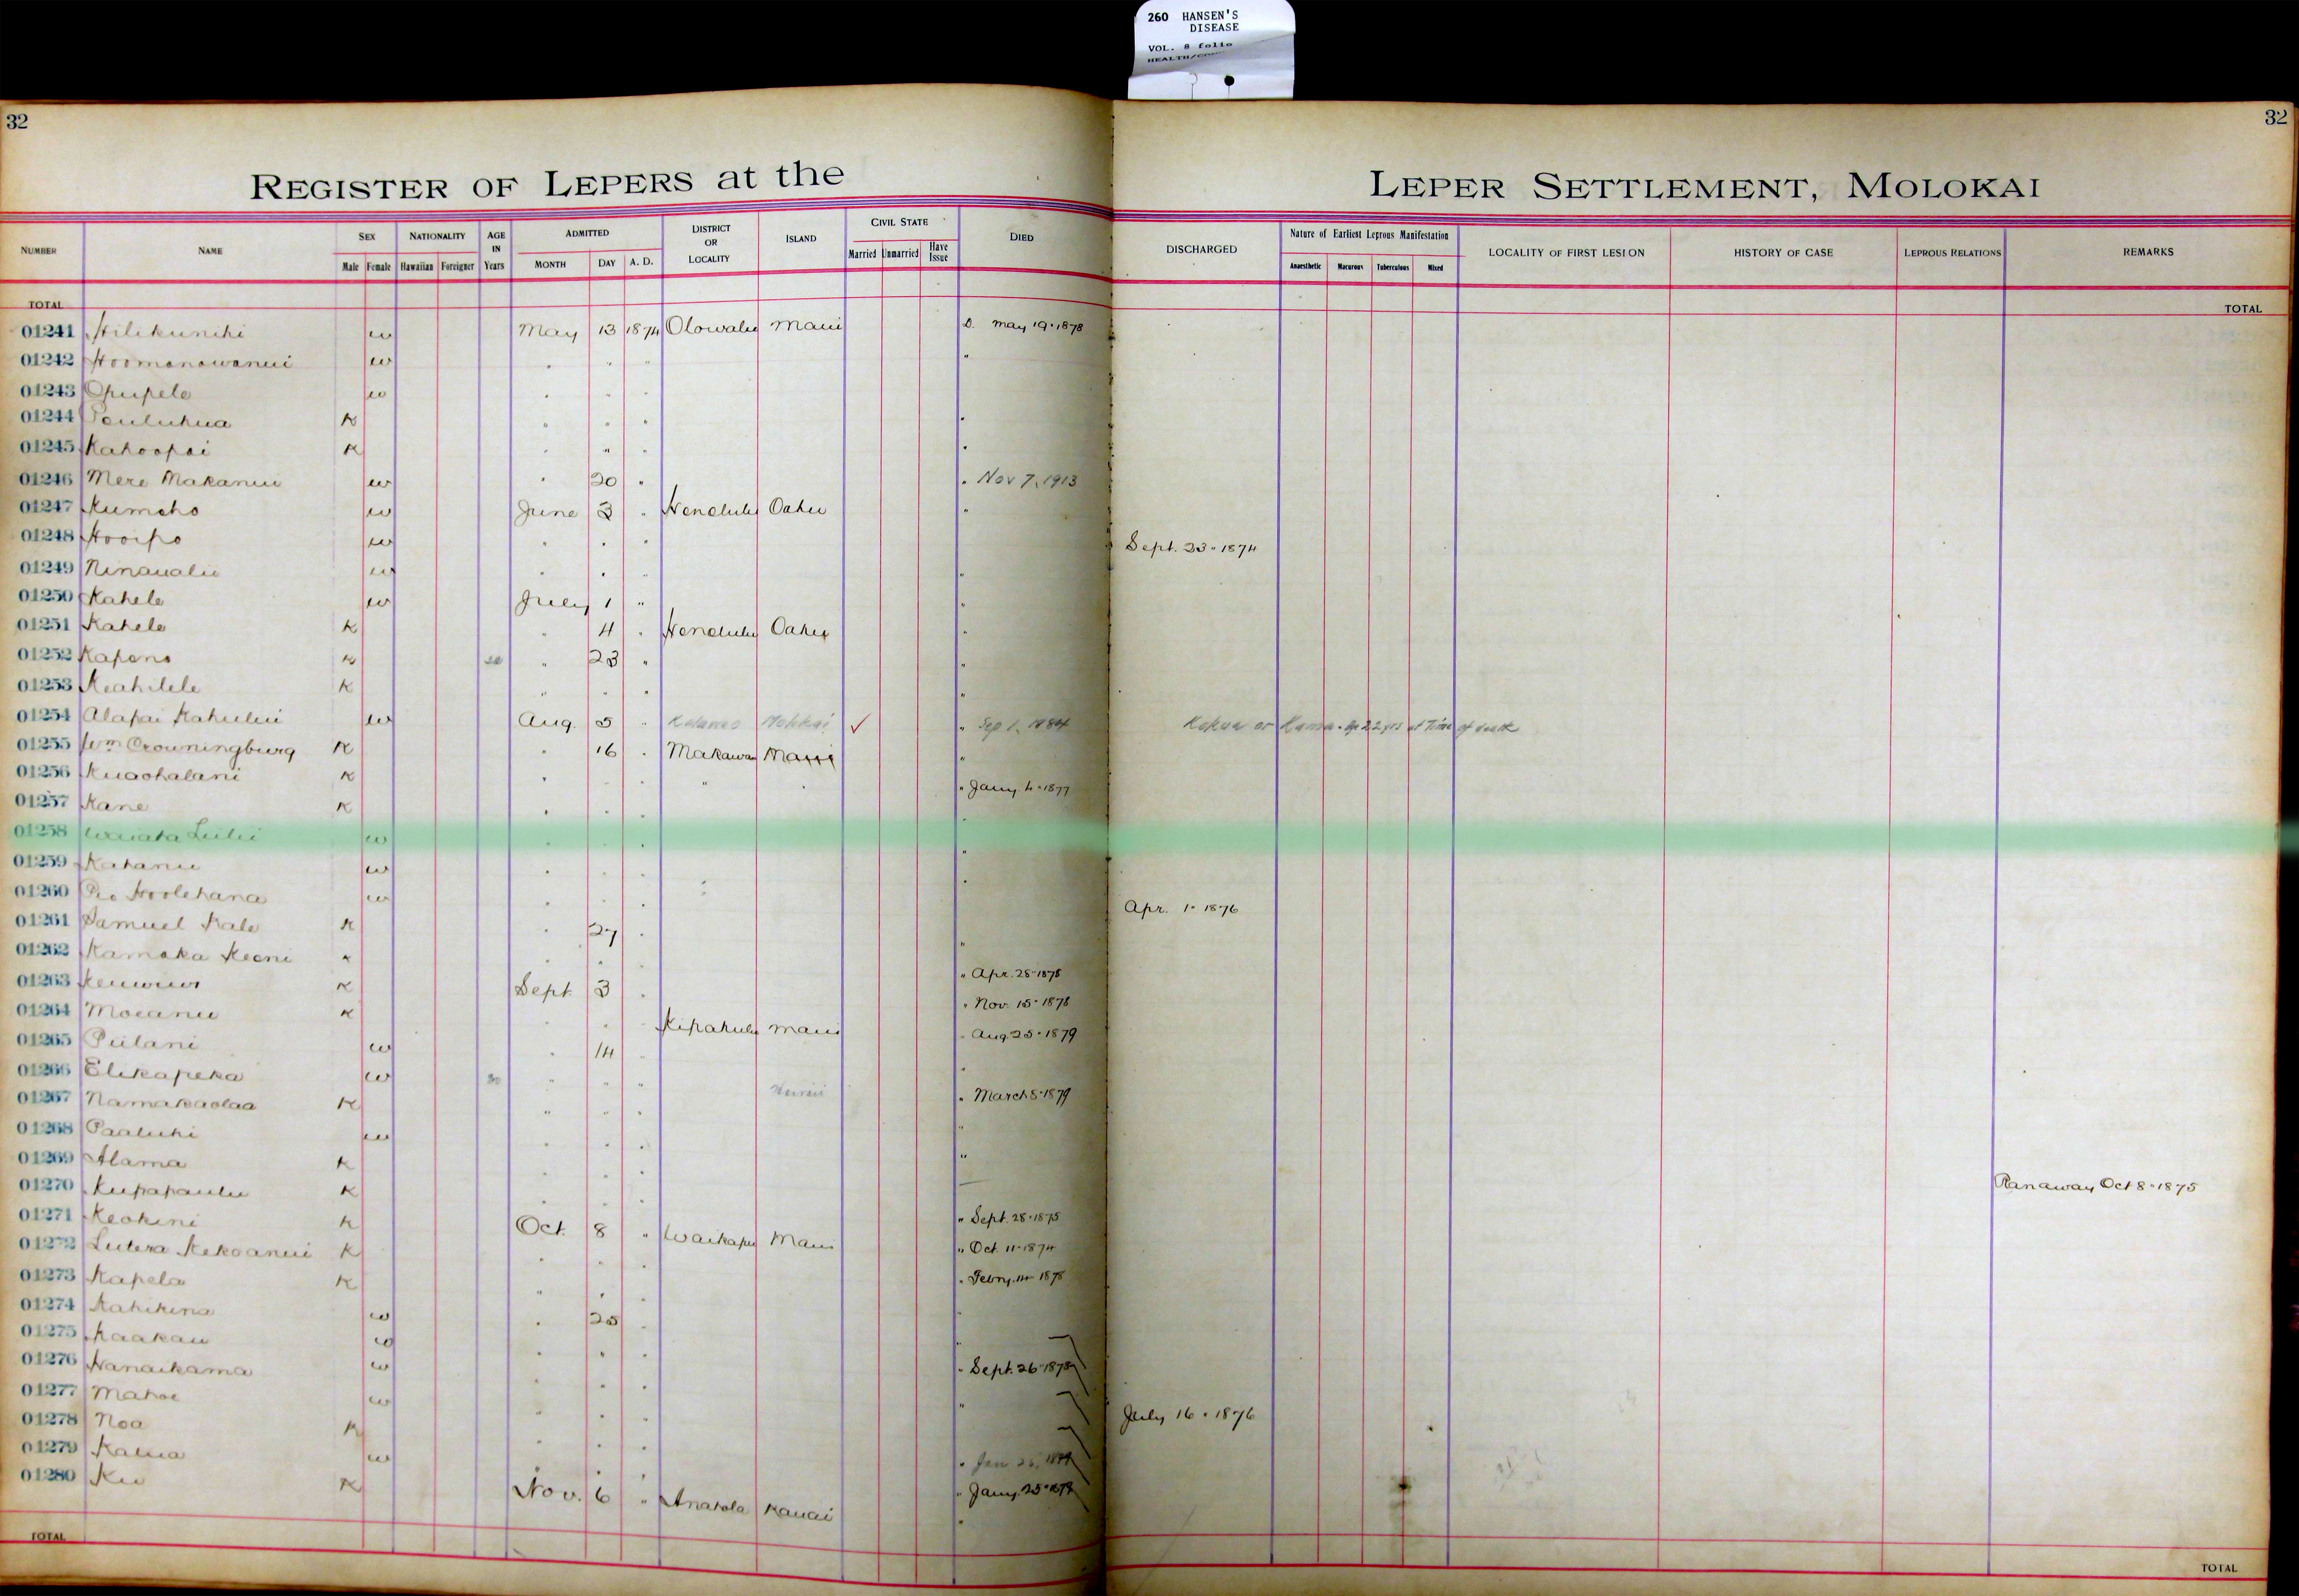 260 HANSEN'S
DISEASE
VOL. 8 folio
32
32
REGISTER OF LEPERS at the LEPER SETTLEMENT, MOLOKAI
NUMBER NAME SEX Male Female NATIONALITY Hawaiian Foreigner AGE IN Years ADMITTED MONTH DAY A. D. DISTRICT OR LOCALITY ISLAND CIVIL STATE Married Unmarried Have Issue DIED DISCHARGED Nature of Earliest Leprous Manifestation Anaesthetic Macurous Tuberculous Mixed LOCALITY OF FIRST LESION HISTORY OF CASE LEPROUS RELATIONS REMARKS
TOTAL TOTAL
01241 Hilikunehi w May 13 1874 Olowalu Maui D. May 19 · 1878
01242 Hoomanawanui w " " " "
01243 Opupele w " " "
01244 Pauluhua K " " " "
01245 Kahoopai K " " " "
01246 Mere Makanui w " 20 " " Nov 7, 1913
01247 Kumeho w June 3 " Honolulu Oahu "
01248 Hooipo w " " " Sept. 23 · 1874
01249 Ninaualii w " " " "
01250 Kahele w July 1 " "
01251 Kahele K " 4 " Honolulu Oahu "
01252 Kapena K " 23 " "
01253 Keahilele K " " " "
01254 Alapai Kahului w Aug. 5 " Kalawao Molokai ✓ " Sep 1, 1884 Kokua or Kamaa. Age 22 yrs at Time of death
01255 Wm Crowningburg K " 16 " Makawao Maui "
01256 Kuaohalani K " " " " " " Jany 4 · 1877
01257 Kane K " " " "
01258 Waiata Luilii w " " " "
01259 Kahanu w " " " "
01260 Pio Hoolehana w " " " Apr. 1 · 1876
01261 Samuel Kale K " 27 " "
01262 Kamaka Keoni K " " " " Apr. 28 · 1878
01263 K Sept 3 " " Nov. 15 · 1878
01264 Moeanu K " " " Kipahulu Maui " Aug 25 · 1879
01265 Piilani w " 14 " "
01266 Elikapeka w 30 " " " Hawaii " March 8 · 1879
01267 Namakaolaa K " " " "
01268 Paaluhi w " " " "
01269 Alama K " " "
01270 Kupapaulu K " " " Ranaway Oct 8 · 1875
01271 Keokini K Oct. 8 " Waikapu Maui " Sept. 28 · 1875
01272 Lutera Kekoanui K " " " " Oct. 11 · 1874
01273 Kapela K " " " " Febry. 14 · 1878
01274 Kahikina w " 25 " "
01275 Kaakau w " " " "
01276 Nanaikama w " " " " Sept. 26 · 1878
01277 Mahoe w " " " "
01278 Noa K " " " July 16 · 1876
01279 Kalua w " " "
01280 Ku K Nov. 6 " Anahola Kauai "
TOTAL TOTAL